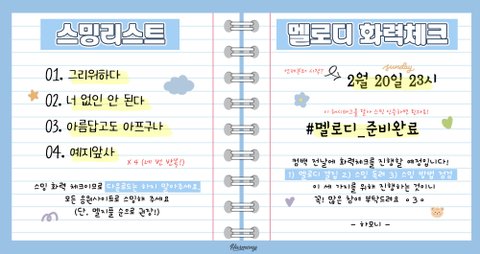 스밍리스트
01. 그리워하다
02. 너 없인 안 된다
03. 아름답고도 아프구나
04. 예지앞사
x 4 (네 번 반복!)
스밍 화력 체크이므로 다운로드는 하지 말아주세요.
모든 음원사이트로 스밍해 주세요
(단, 멜지플 순으로 권장!)
멜로디 화력체크
sunday
2월 20일 23시
#멜로디_준비완료
컴백 전날에 화력체크를 진행할 예정입니다!
1) 멜로디 결집 2) 스밍 독려 3) 스밍 방법 점검
이 세 가지를 위해 진행하는 것이니
꼭! 많은 참여 부탁드려요
- 하모니 -
Harmony